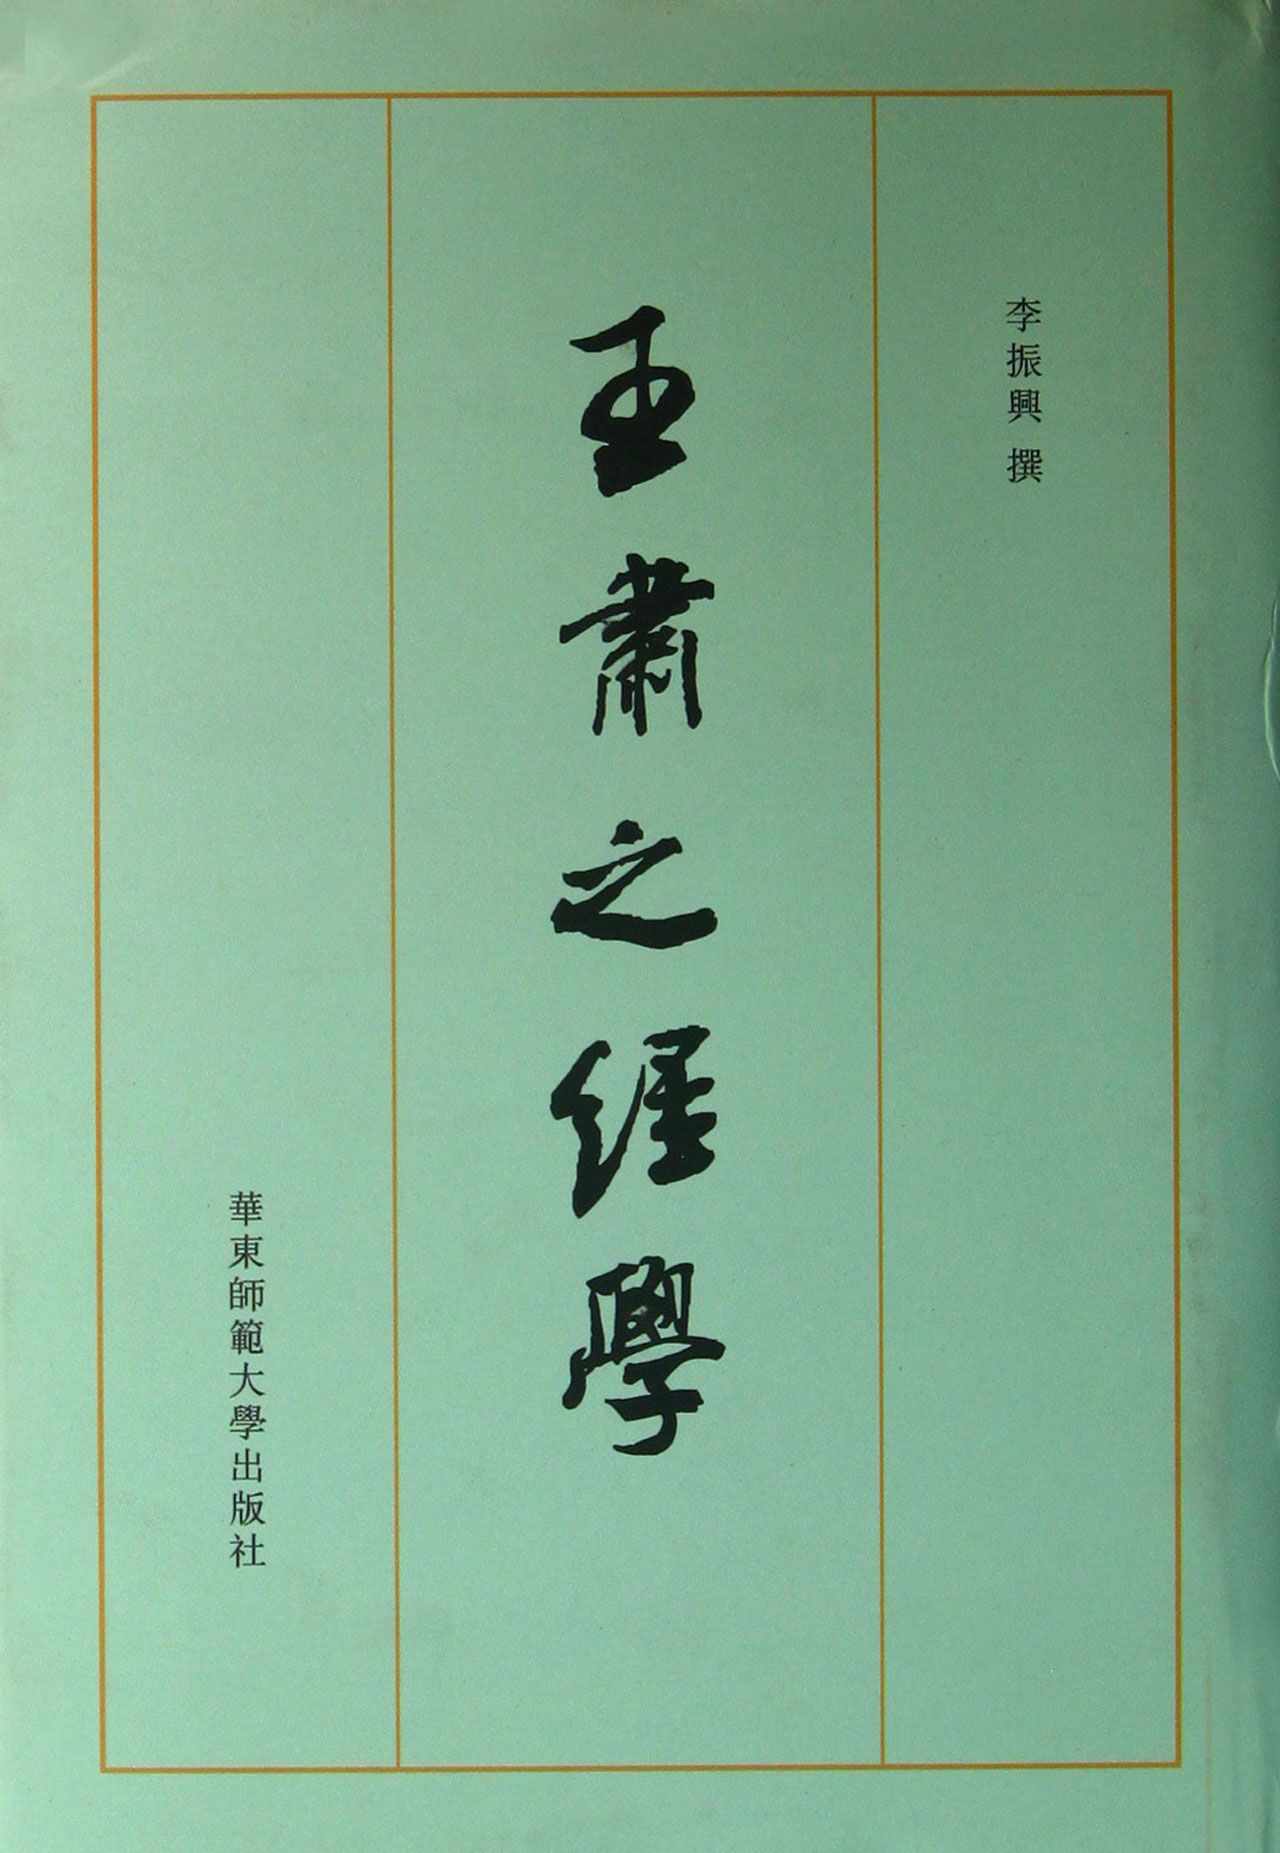 李振興 撰
王肅之經學
華東師範大學出版社